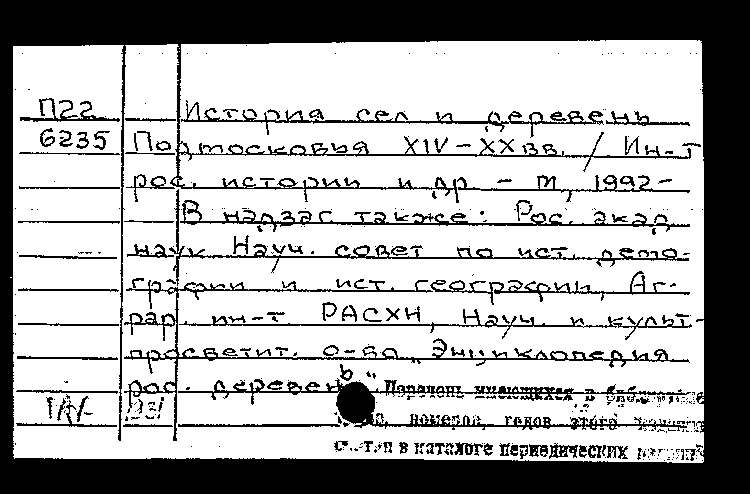 П22 История сел и деревень
6235 Подмосковья XIV-XX вв. / Ин-т
рос. истории и др - М, 1992-
В надзаг также: Рос. акад
наук Науч. совет по ист. демо-
графии и ист. географии, Аг-
рар. ин-т РАСХН, Науч. и культ-
просветит. о-во „Энциклопедия
рос. деревень". Перечень имеющихся в библиотеке
номеров, годов этого издания
смотри в каталоге периодических изданий